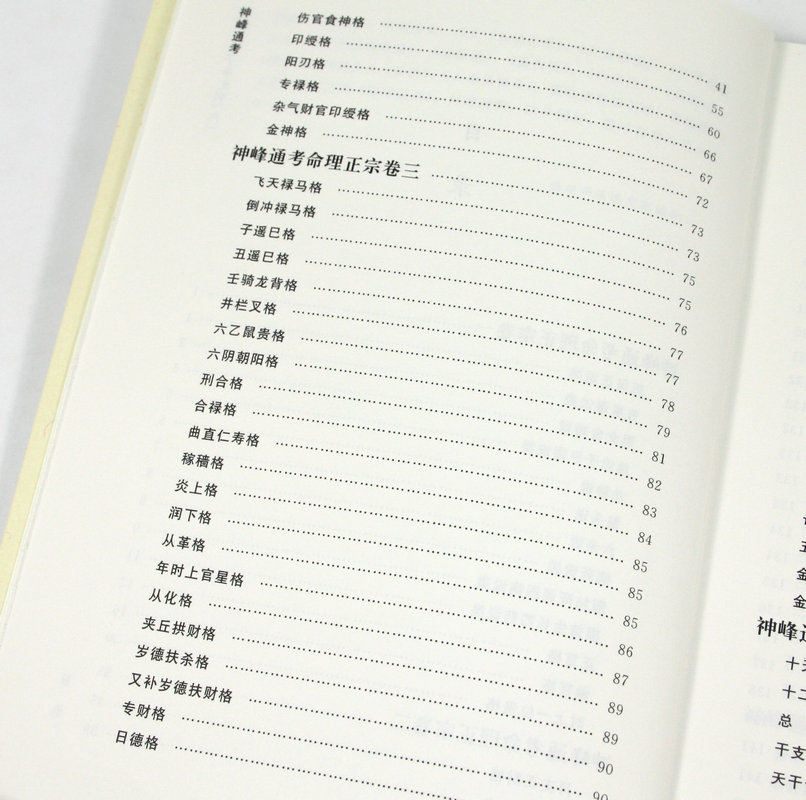 神峰通考
伤官食神格 41
印绶格 55
阳刃格 60
专禄格 66
杂气财官印绶格 67
金神格 72
神峰通考命理正宗卷三 73
飞天禄马格 73
倒冲禄马格 75
子遥巳格 75
丑遥巳格 76
壬骑龙背格 77
井栏叉格 77
六乙鼠贵格 78
六阴朝阳格 79
刑合格 81
合禄格 82
曲直仁寿格 83
稼穑格 84
炎上格 85
润下格 85
从革格 85
年时上官星格 86
从化格 87
夹丘拱财格 89
岁德扶杀格 89
又补岁德扶财格 90
专财格 90
日德格
金
金
神峰
十天
十二
总
干支
天干